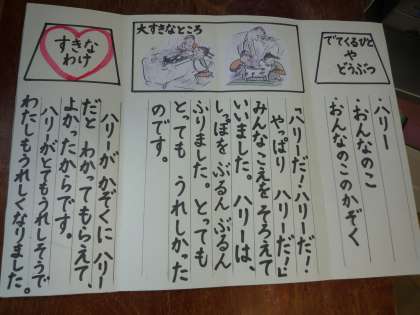 でてくるひと
や
どうぶつ
ハリー
・おんなのこ
・おんなのこのかぞく
大すきなところ
「ハリーだ!ハリーだ!
やっぱり ハリーだ!」
みんなこえをそろえて
いいました。ハリーは、
しっぽを ぶるん ぶるん
ふりました。とっても
とっても うれしかった
のです。
すきな
わけ
ハリーが かぞくに ハリー
だと わかってもらえて、
よかったからです。
ハリーがとてもうれしそうで
わたしもうれしくなりました。